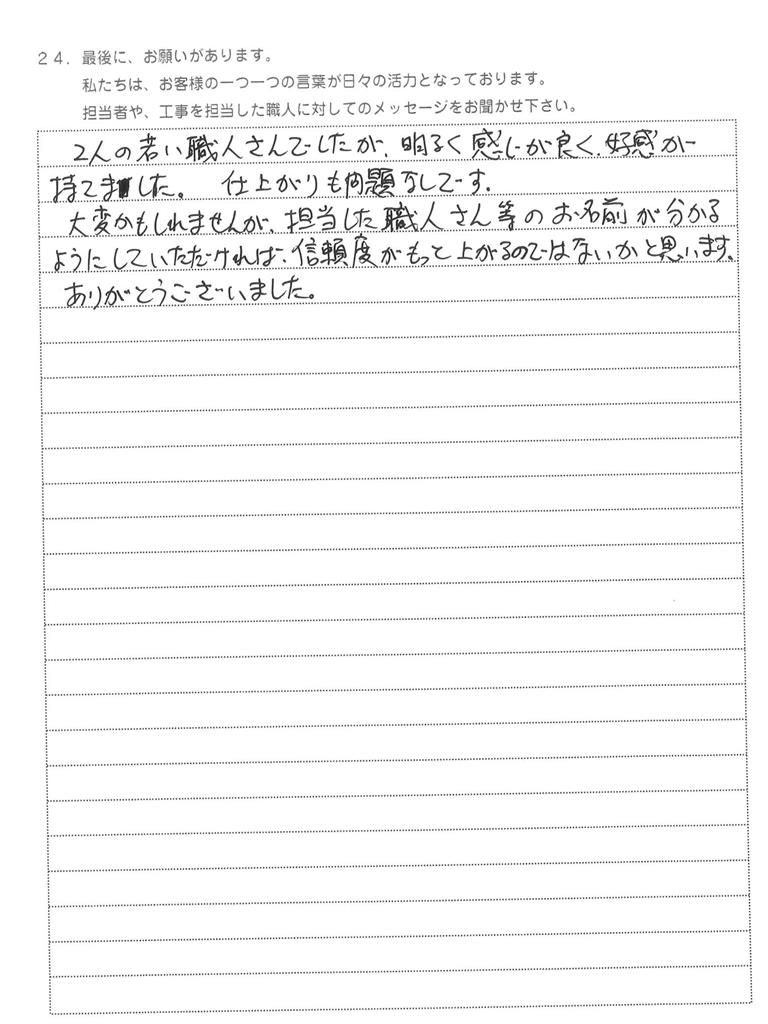 24．最後に、お願いがあります。
私たちは、お客様の一つ一つの言葉が日々の活力となっております。
担当者や、工事を担当した職人に対してのメッセージをお聞かせ下さい。
2人の若い職人さんでしたが、明るく感じが良く、好感が
持てました。 仕上がりも問題なしです。
大変かもしれませんが、担当した職人さん等のお名前が分かる
ようにしていただければ、信頼度がもっと上がるのではないかと思います。
ありがとうございました。